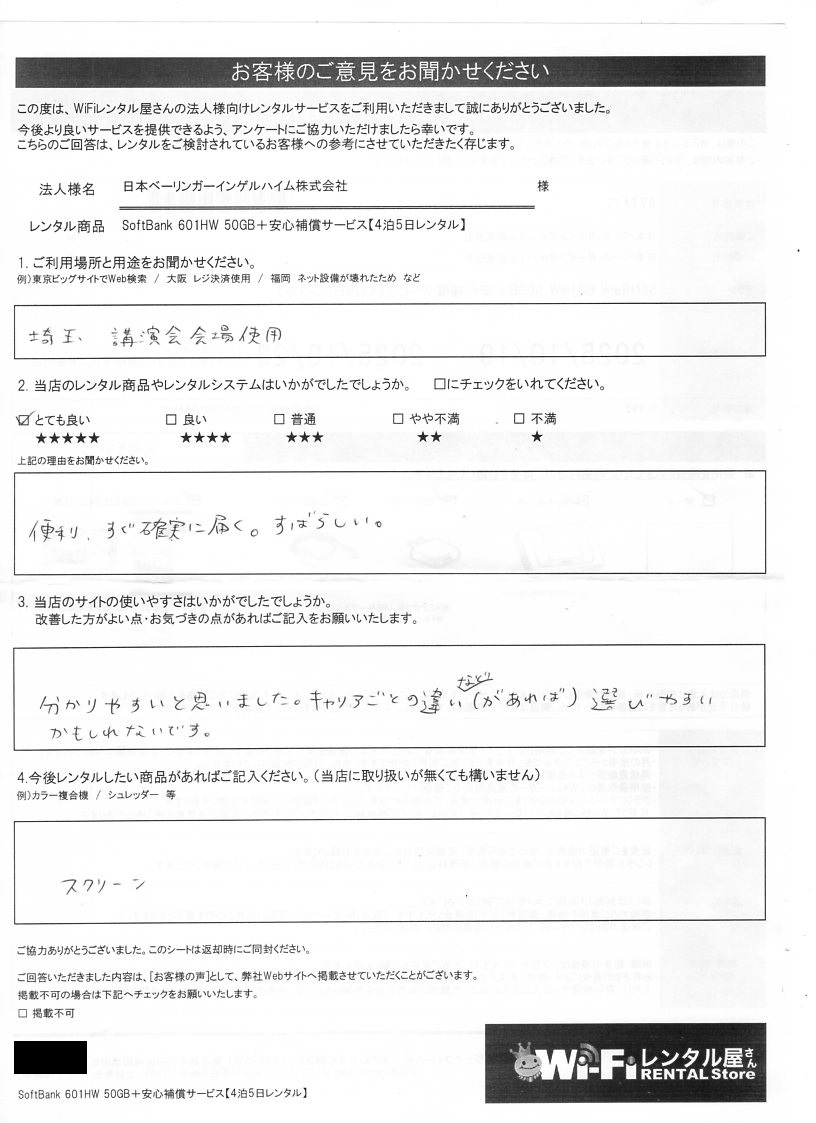 お客様のご意見をお聞かせください
この度は、WiFiレンタル屋さんの法人様向けレンタルサービスをご利用いただきまして誠にありがとうございました。
今後より良いサービスを提供できるよう、アンケートにご協力いただけましたら幸いです。
こちらのご回答は、レンタルをご検討されているお客様への参考にさせていただきたく存じます。
法人様名 日本ベーリンガーインゲルハイム株式会社 様
レンタル商品 SoftBank 601HW 50GB+安心補償サービス【4泊5日レンタル】
1. ご利用場所と用途をお聞かせください。
例)東京ビッグサイトでWeb検索 / 大阪 レジ決済使用 / 福岡 ネット設備が壊れたため など
埼玉、講演会会場使用
2. 当店のレンタル商品やレンタルシステムはいかがでしたでしょうか。 □にチェックをいれてください。
☑ とても良い □ 良い □ 普通 □ やや不満 □ 不満
★★★★★ ★★★★ ★★★ ★★ ★
上記の理由をお聞かせください。
便利、すぐ確実に届く。すばらしい。
3. 当店のサイトの使いやすさはいかがでしたでしょうか。
改善した方がよい点・お気づきの点があればご記入をお願いいたします。
分かりやすいと思いました。キャリアごとの違いなど(があれば)選びやすい
かもしれないです。
4.今後レンタルしたい商品があればご記入ください。(当店に取り扱いが無くても構いません)
例)カラー複合機 / シュレッダー 等
スクリーン
ご協力ありがとうございました。このシートは返却時にご同封ください。
ご回答いただきました内容は、[お客様の声]として、弊社Webサイトへ掲載させていただくことがございます。
掲載不可の場合は下記へチェックをお願いいたします。
□ 掲載不可
Wi-Fiレンタル屋さん
RENTAL Store
SoftBank 601HW 50GB+安心補償サービス【4泊5日レンタル】